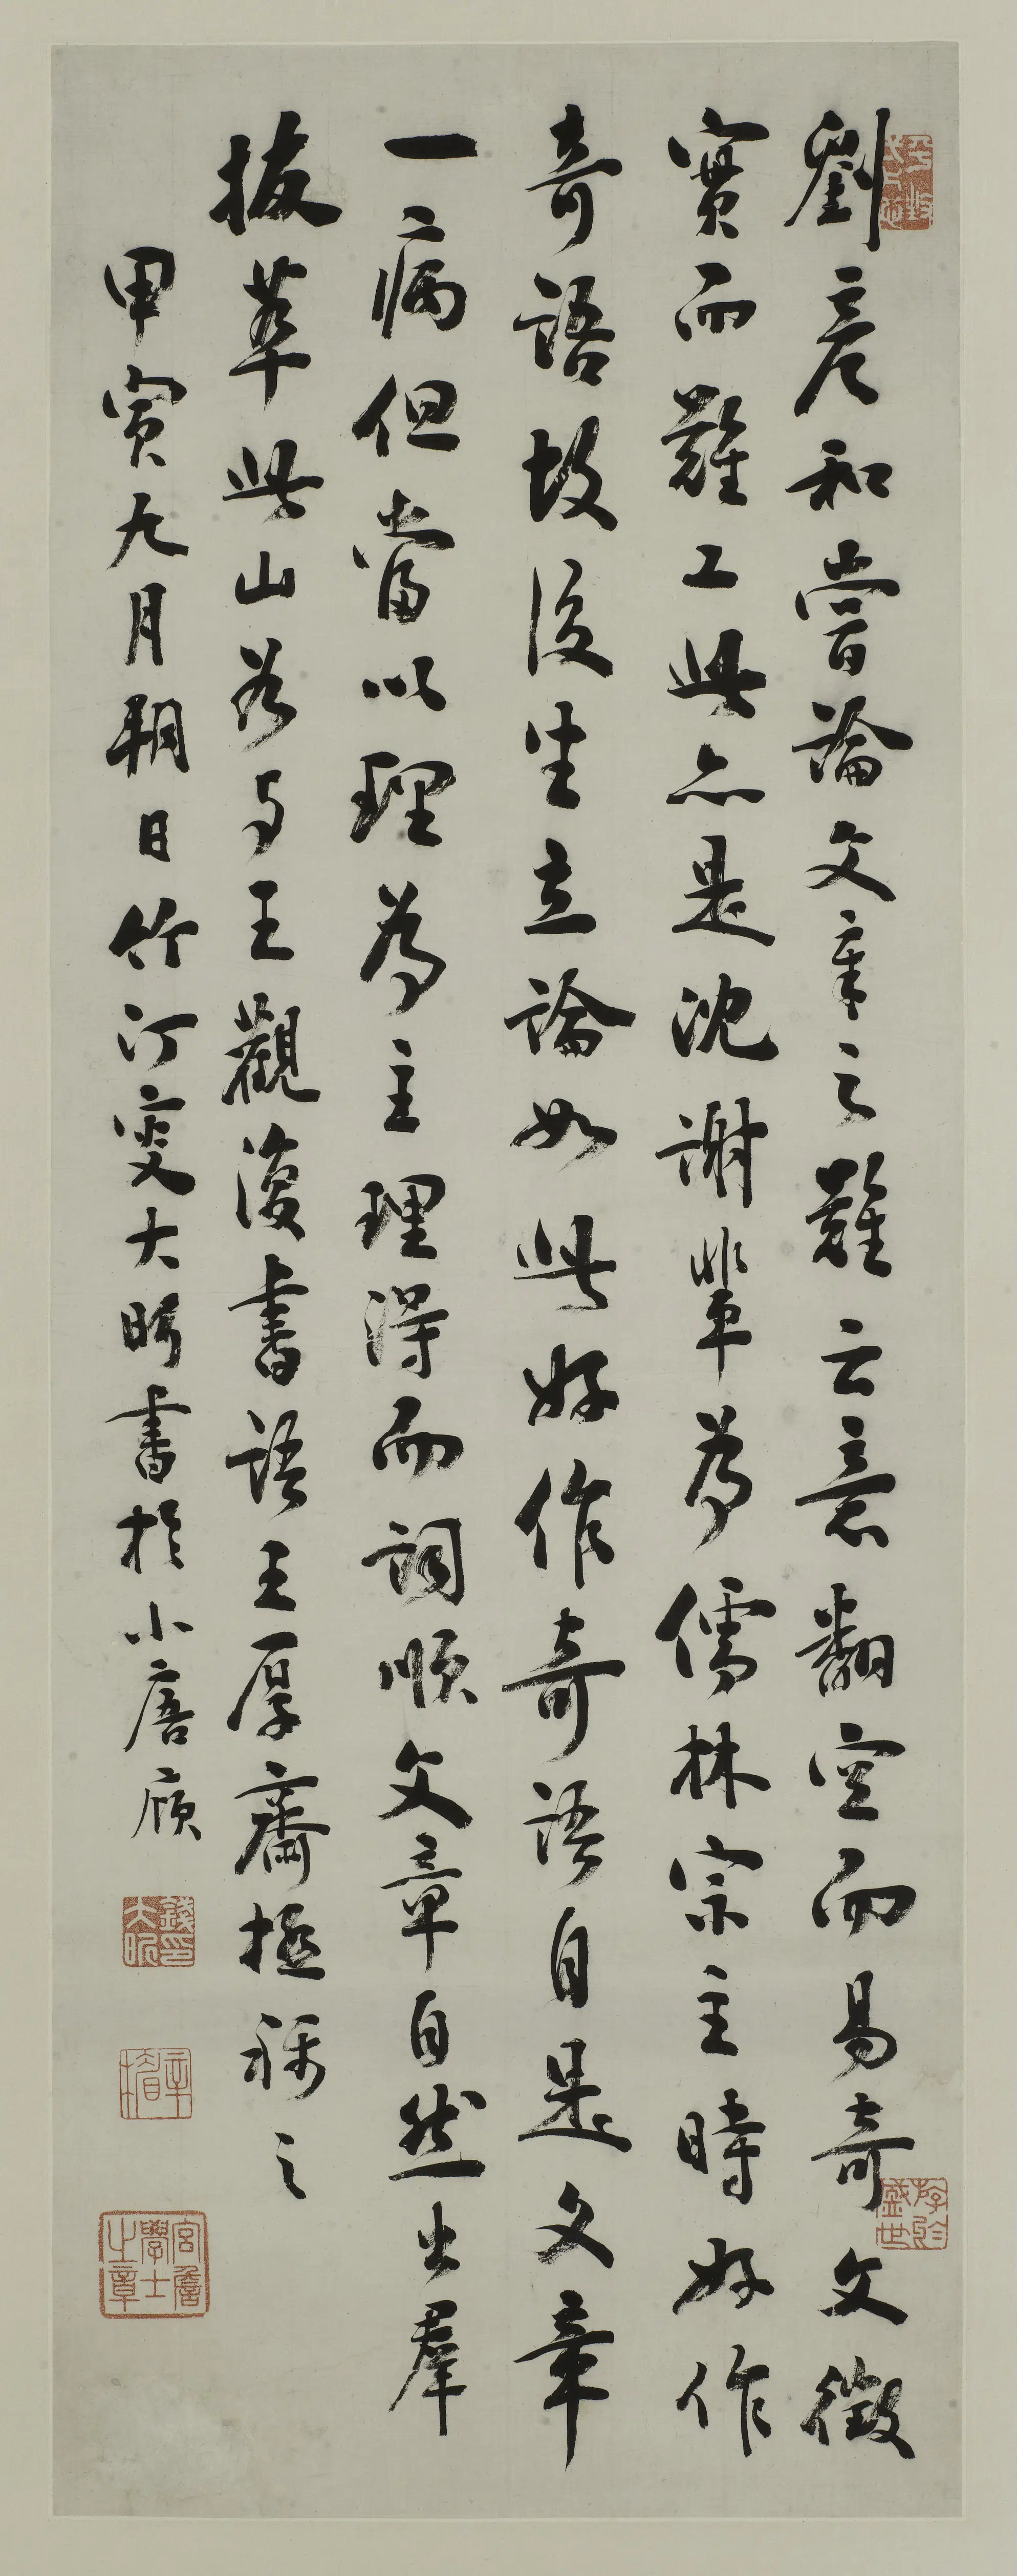 劉彥和嘗論文章之難云意翻空而易奇文徵
實而難工此亦是沈謝輩為儒林宗主時好作
奇語故後生立論如此好作奇語自是文章
一病但當以理為主理得而詞順文章自然出羣
拔萃此山谷与王觀復書語王厚齋極称之
甲寅九月朔日竹汀叟大昕書於小唐廎
錢大昕印
辛楣
宮詹學士之章